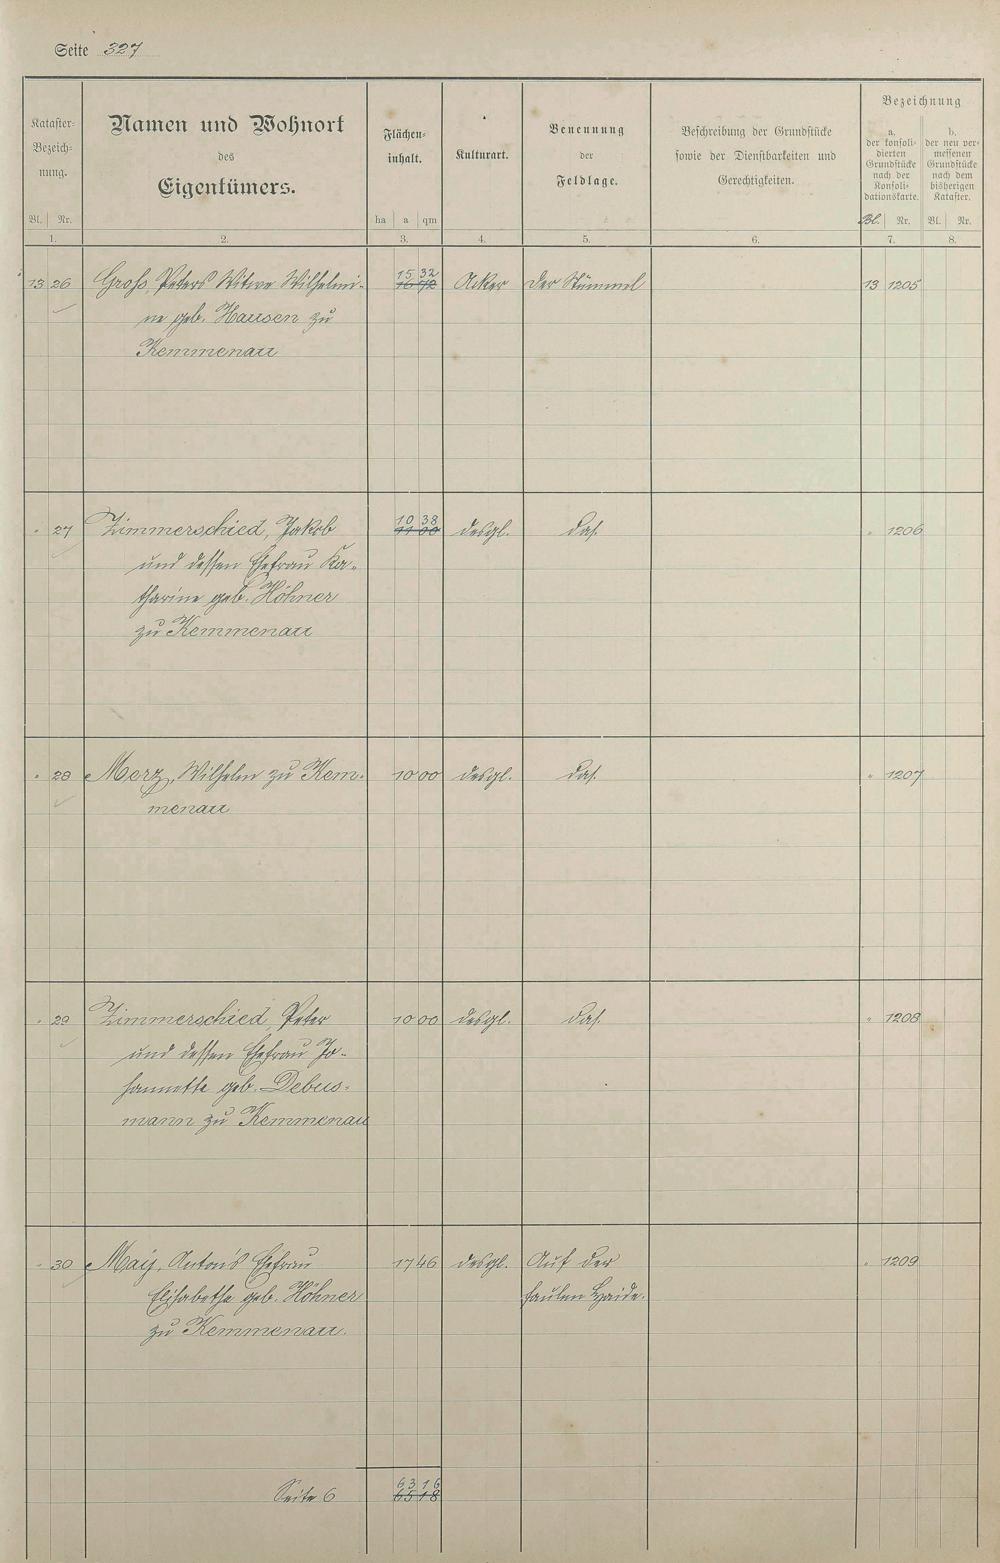 Seite 327
Kataster-
Bezeich-
nung.
Bl. Nr.
1.
Namen und Wohnort
des
Eigentümers.
2.
Flächen-
inhalt.
ha a qm
3.
Kulturart.
4.
Benennung
der
Feldlage.
5.
Beschreibung der Grundstücke
sowie der Dienstbarkeiten und
Gerechtigkeiten.
6.
Bezeichnung
a.
der konsoli-
dierten
Grundstücke
nach der
Konsoli-
dationskarte.
Bl. Nr.
7.
b.
der neu ver-
messenen
Grundstücke
nach dem
bisherigen
Kataster.
Bl. Nr.
8.
15 32
13 26 Groß, Peters Witwe Wilhelmi- Acker Der Stümmel 13 1205
ne geb. Hausen zu
Kemmenau
10 38
" 27 Zimmerschied, Jakob 11 00 desgl. das. " 1206
und dessen Ehefrau Ka-
tharine geb. Höhner
zu Kemmenau
" 28 Merz, Wilhelm zu Kem- 10 00 desgl. das. " 1207
menau
" 29 Zimmerschied, Peter 10 00 desgl. das. " 1208
und dessen Ehefrau Jo-
hannette geb. Debus-
mann zu Kemmenau
" 30 May, Anton's Ehefrau 17 46 desgl. Auf der " 1209
Elisabetha geb. Höhner faulen Haide.
zu Kemmenau.
63 16
Seite 6 65 18